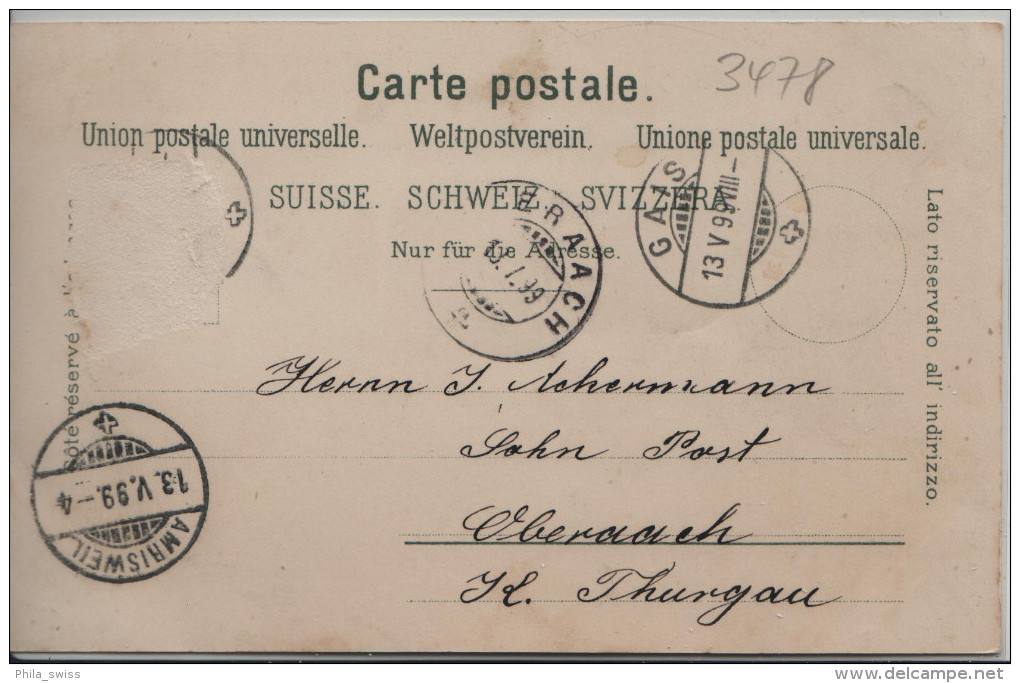 3478
Carte postale.
Union postale universelle. Weltpostverein. Unione postale universale.
SUISSE. SCHWEIZ. SVIZZERA.
Nur für die Adresse.
réservé à
Lato riservato all' indirizzo.
GAIS
13 V 99 VIII–
ERAACH
99
AMRISWEIL
13. V. 99.–4
Herrn J. Achermann
Sohn Post
Oberaach
K. Thurgau
Phila_swiss
delcampe.net